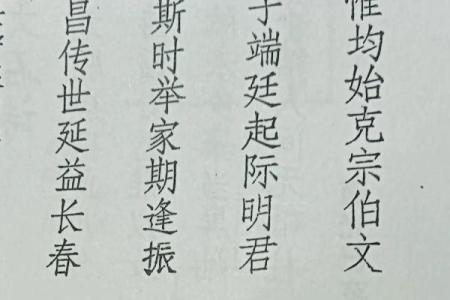 惟均始克宗伯文
子端廷起际明君
斯时举家期逢振
昌传世延益长春